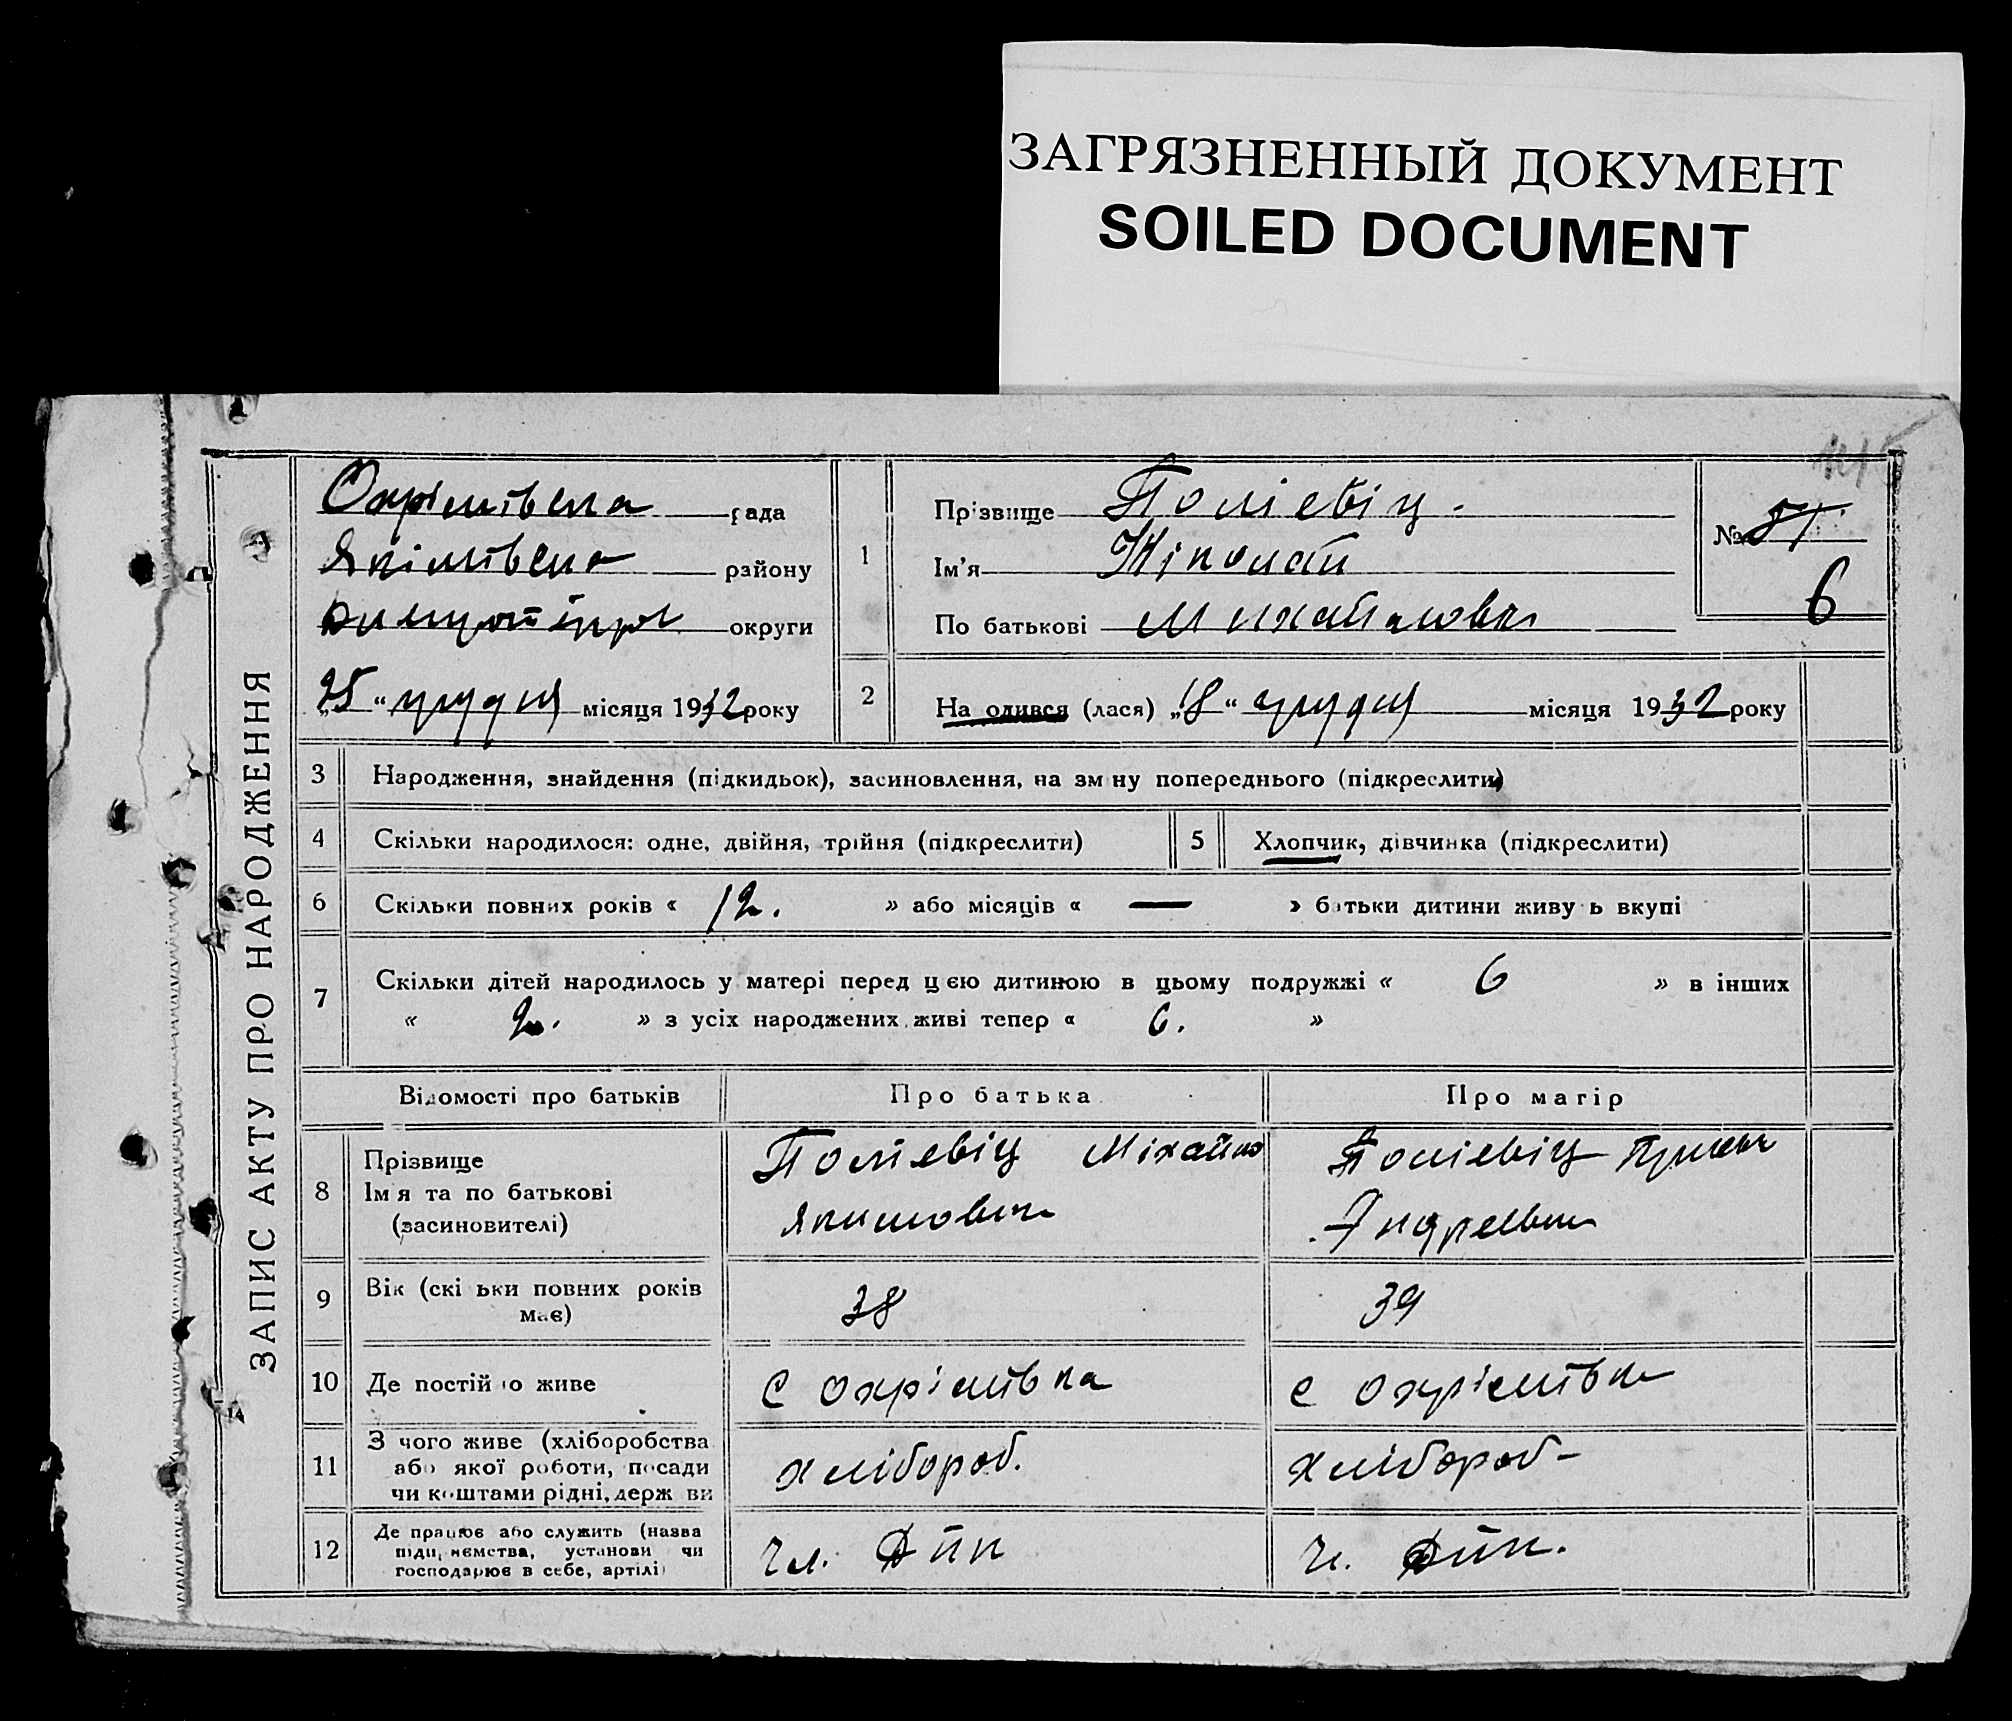 ЗАГРЯЗНЕННЫЙ ДОКУМЕНТ
SOILED DOCUMENT
ЗАПИС АКТУ ПРО НАРОДЖЕННЯ
Охрімівска рада
Якімівска району
округи
„25“ грудня місяця 1932 року
1
Прізвище Поліевіц.
Ім'я Ніколай
По батькові Михайлович
№ 81
6
2 Народився (лася) „18“ грудня місяця 1932 року
3 Народження, знайдення (підкидьок), засиновлення, на зміну попереднього (підкреслити)
4 Скільки народилося: одне, двійня, трійня (підкреслити)
5 Хлопчик, дівчинка (підкреслити)
6 Скільки повних років « 12. » або місяців « — » батьки дитини живуть вкупі
7 Скільки дітей народилось у матері перед цією дитиною в цьому подружжі « 6 » в інших
« 2. » з усіх народжених живі тепер « 6. »
Відомості про батьків Про батька Про матір
8 Прізвище
Імя та по батькові
(засиновителі)
Поліевіц Міхайло
Якимович
Поліевіц
Андреевна
9 Вік (скільки повних років
має)
38
39
10 Де постійно живе
с Охрімівка
с Охрімівка
11 З чого живе (хліборобства
або якої роботи, посади
чи коштами рідні, держави
хлібороб.
хлібороб-
12 Де працює або служить (назва
підприємства, установи чи
господарює в себе, артілі)
чл.
чл.